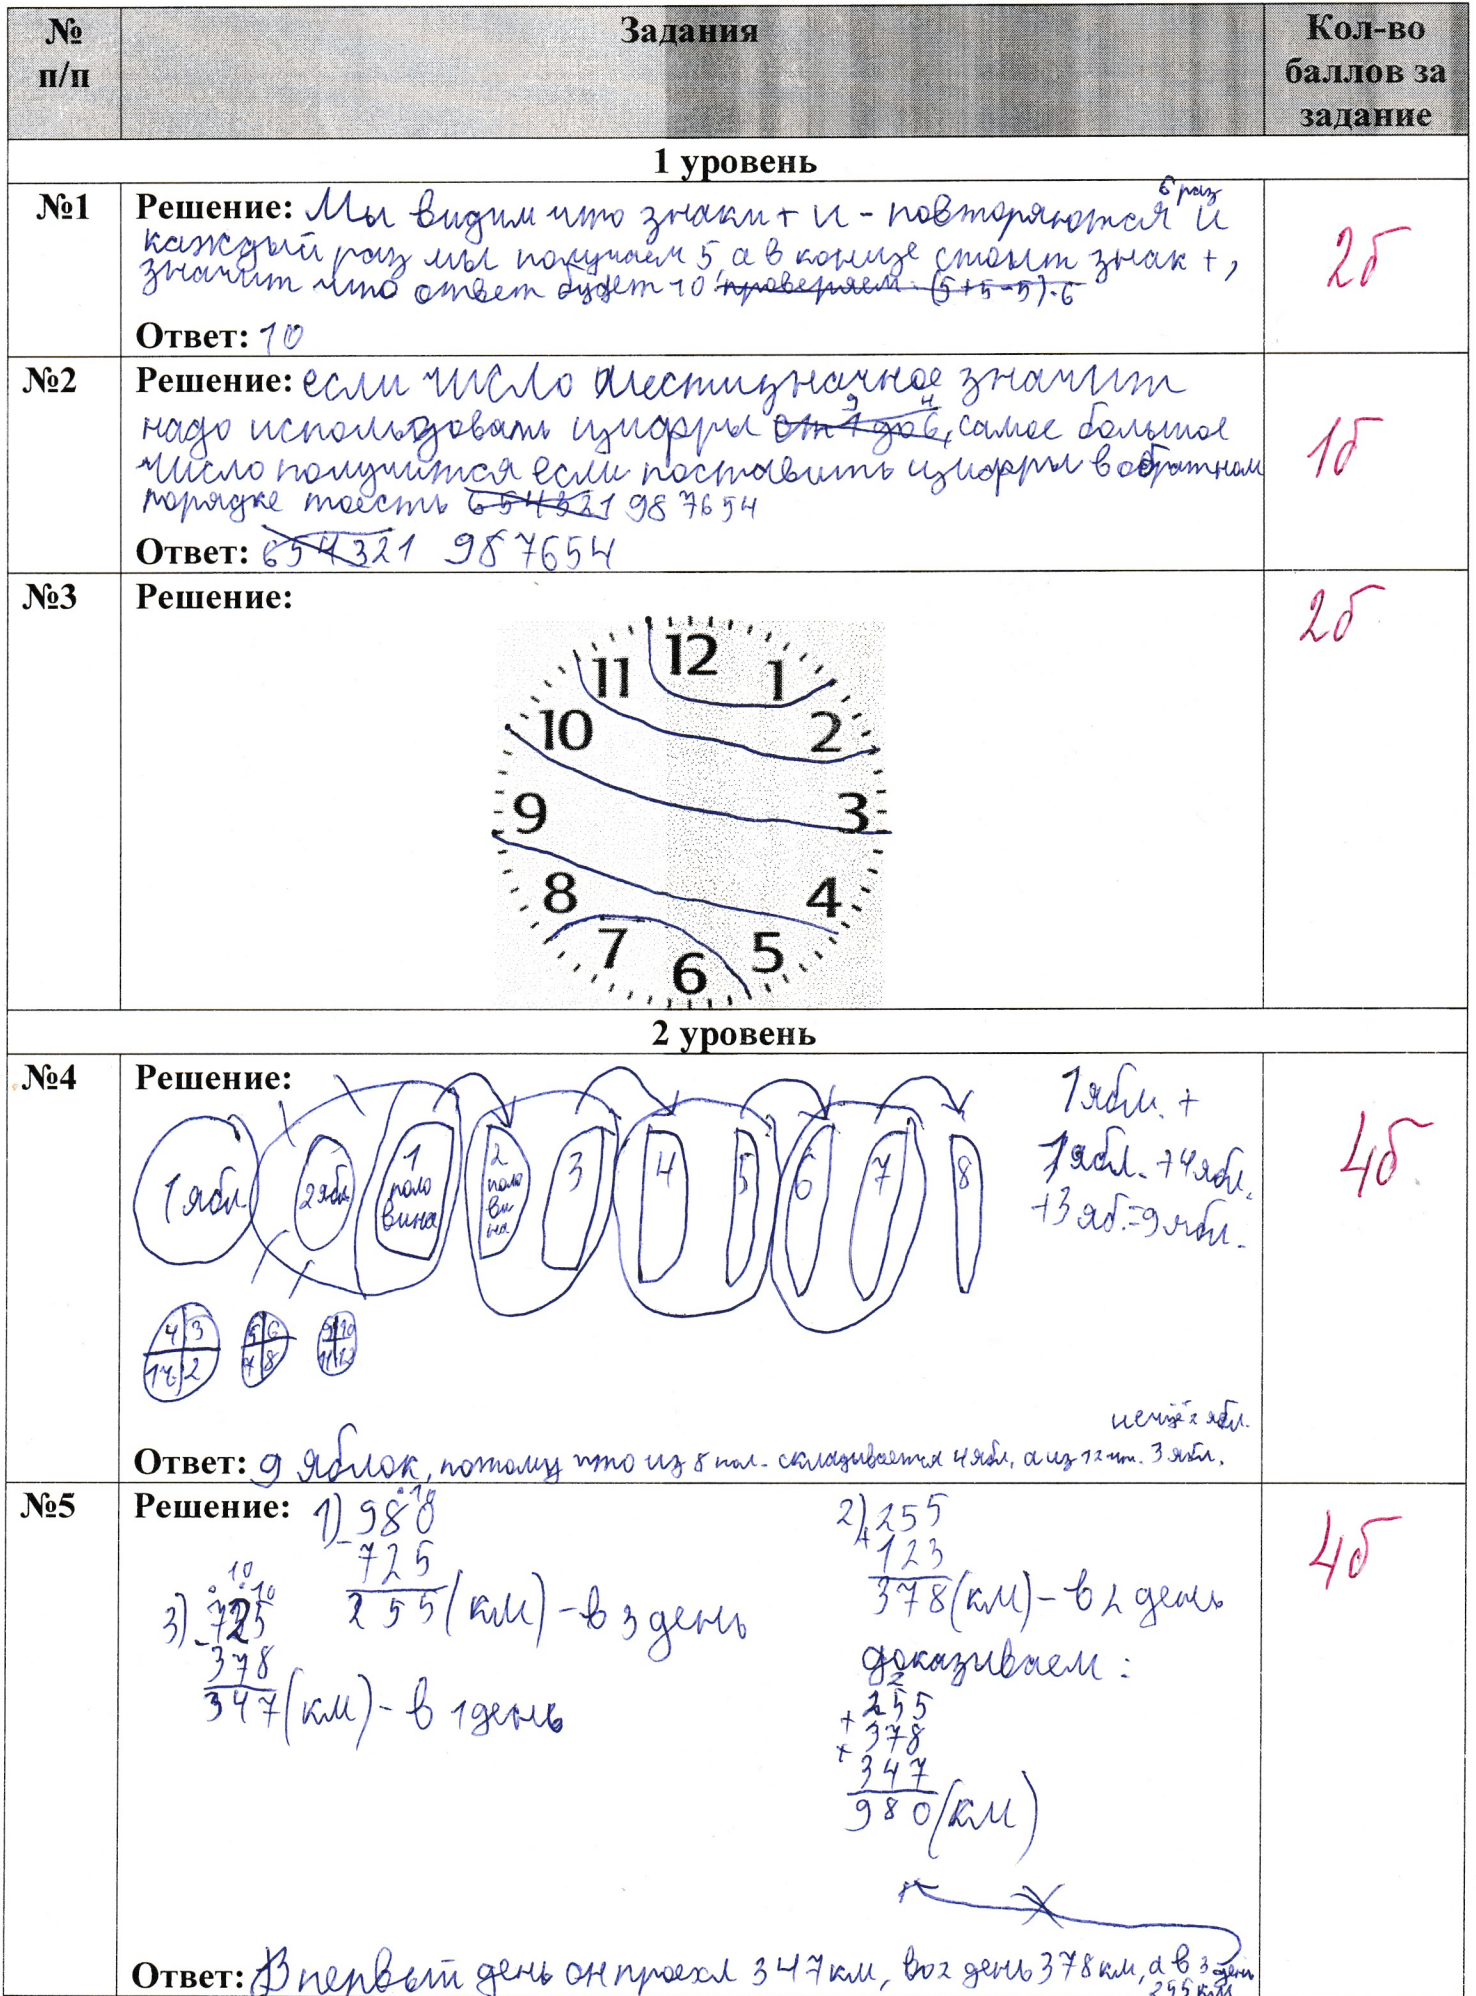 № п/п
Задания
Кол-во баллов за задание
1 уровень
№1
Решение: Мы видим что знаки + и - повторяются 6 раз и
каждый раз мы получаем 5, а в конце стоит знак +,
значит что ответ будет 10 проверяем: (5+5-5)·6
Ответ: 10
2б
№2
Решение: если число шестизначное значит
надо использовать цифры от 9 до 4, самое большое
число получится если поставить цифры в обратном
порядке тоесть 654321 987654
Ответ: 654321 987654
1б
№3
Решение:
12
11
1
10
2
9
3
8
4
7
5
6
2б
2 уровень
№4
Решение:
1 ябл.
2 ябл.
1 половина
2 половина
3
4
5
6
7
8
1 ябл. +
1 ябл. + 4 ябл.
+ 3 яб. = 9 ябл.
4 3
2
5 6
7 8
Ответ: 9 яблок, потому что из 8 пол. складывается 4 ябл, а из 12 чт. 3 ябл.
4б
№5
Решение:
1) 980
- 725
255 (км) - в 3 день
2) 255
+ 123
378 (км) - в 2 день
3) 725
- 378
347 (км) - в 1 день
доказиваем:
2
255
+ 378
+ 347
980 (км)
Ответ: В первый день он проехл 347 км, во 2 день 378 км, а в 3 день
255 км
4б